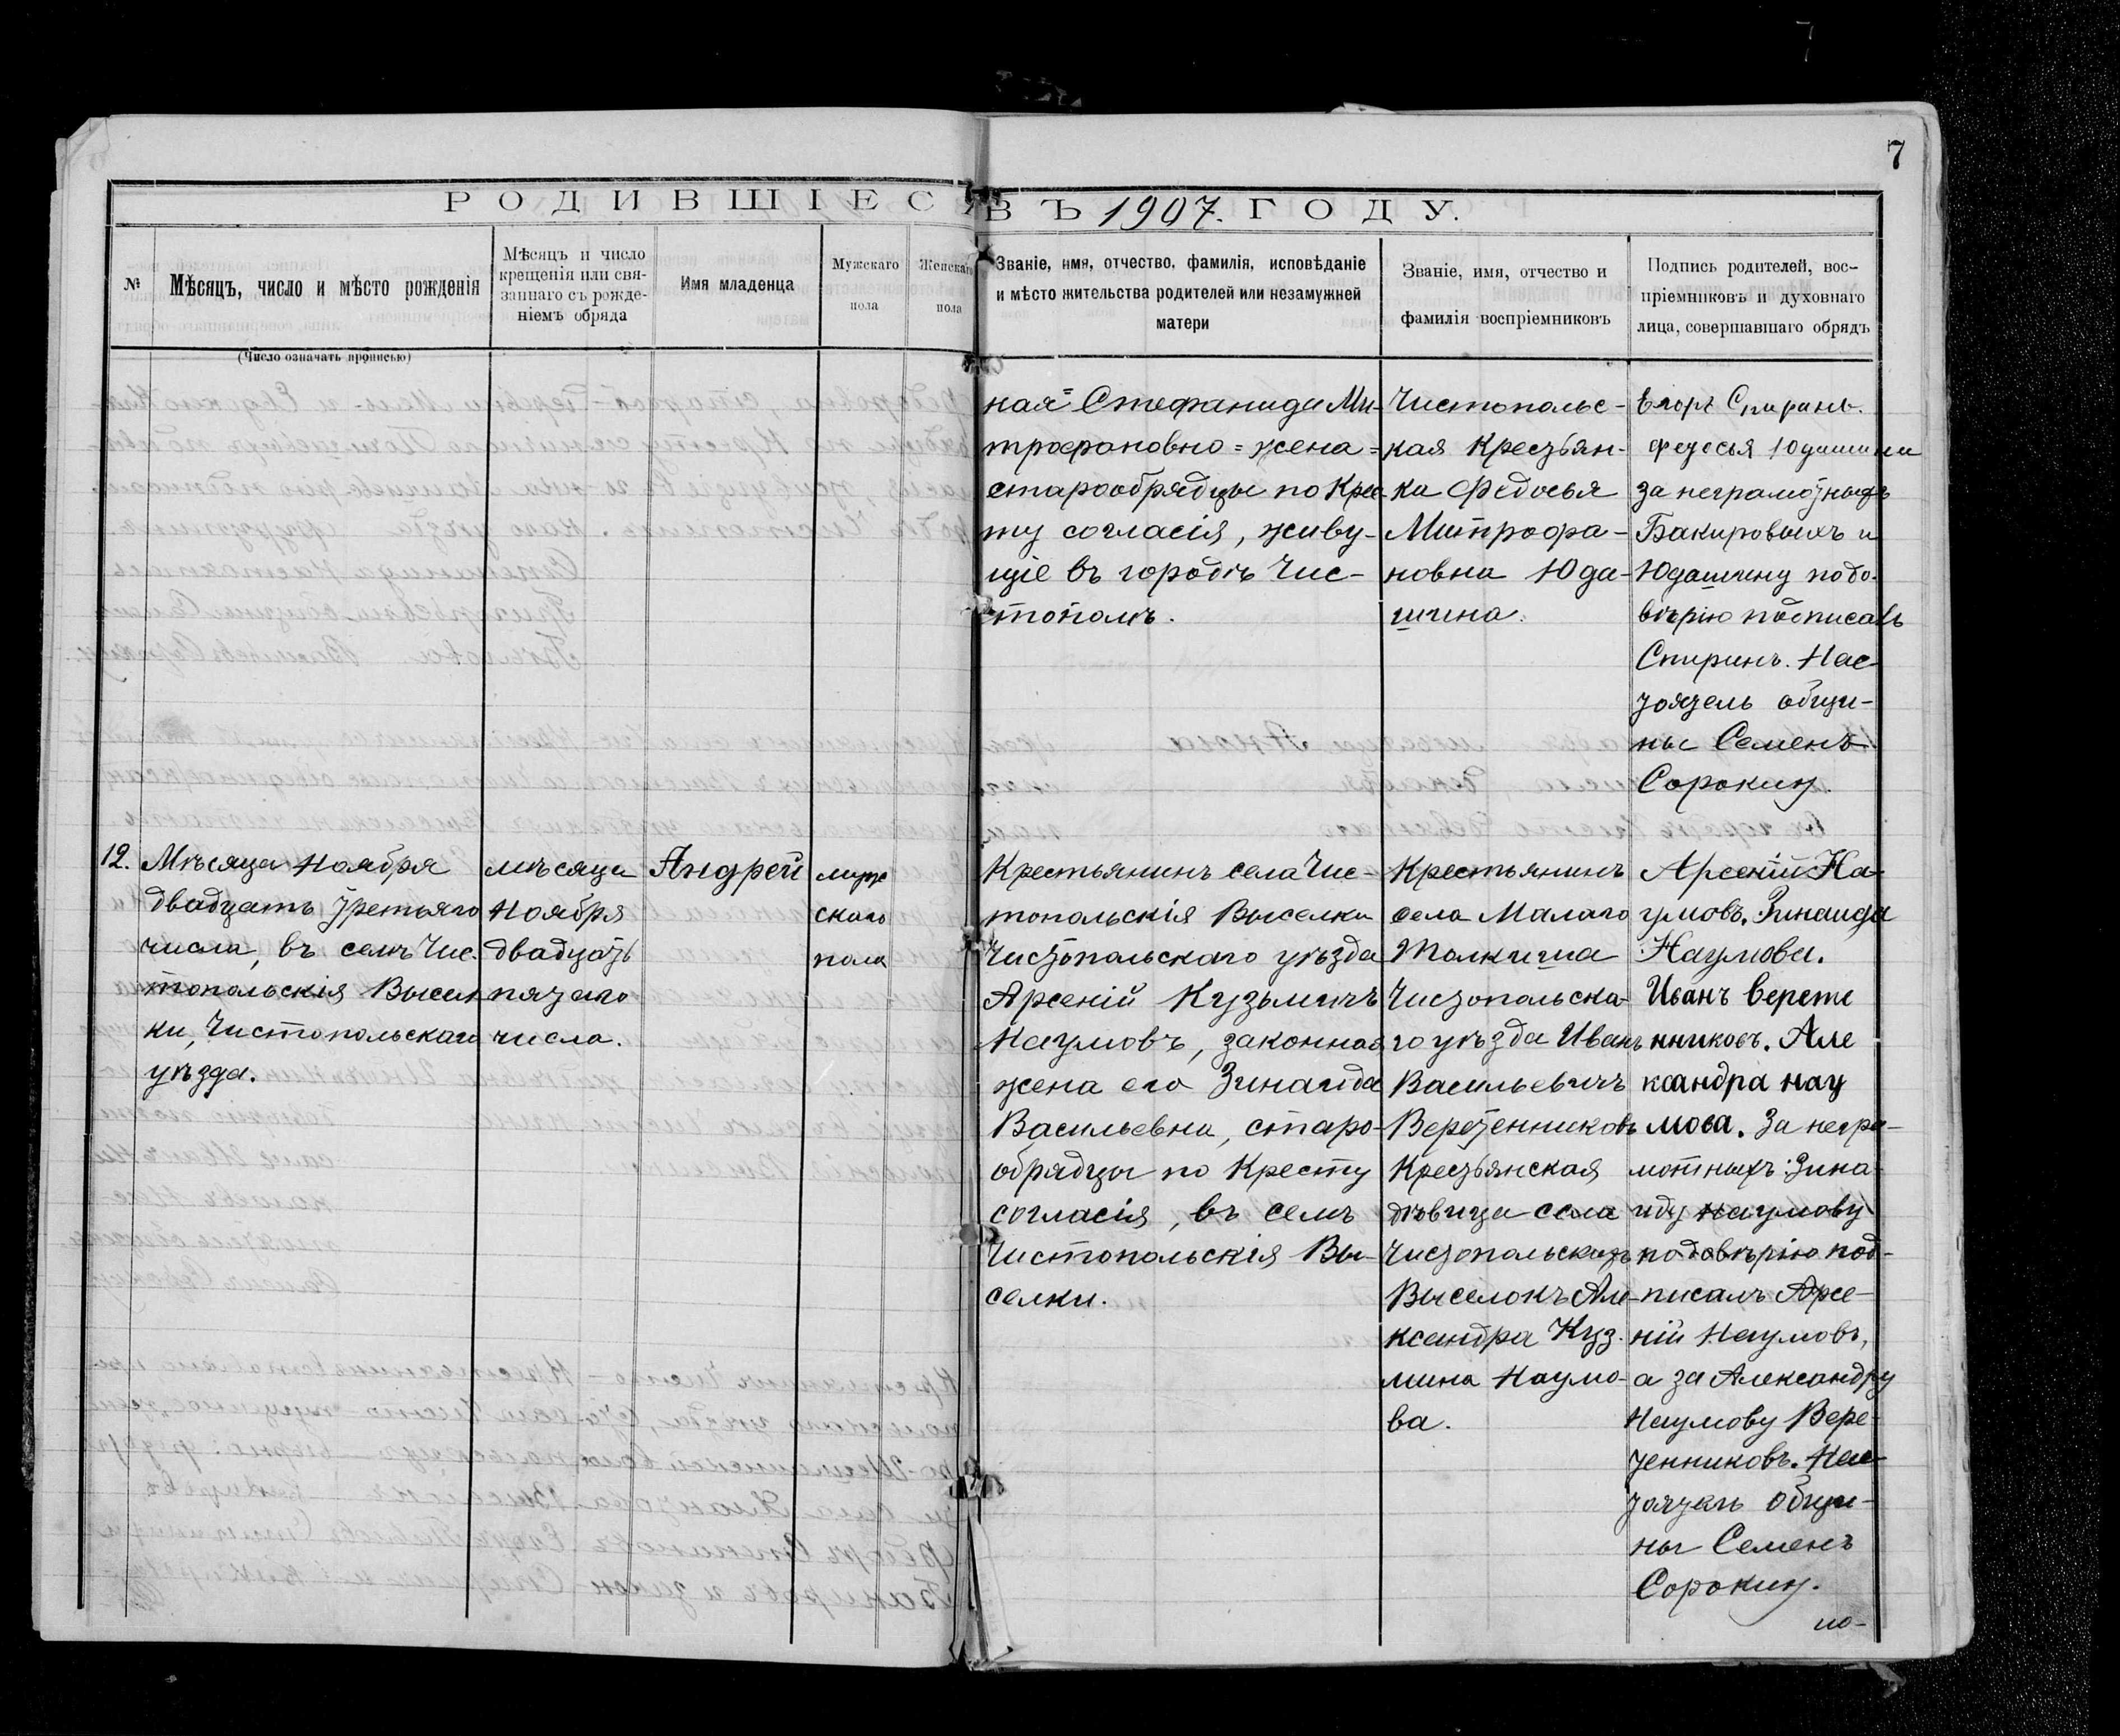 7
РОДИВШІЕСЯ ВЪ 1907. ГОДУ.
№
Мѣсяцъ, число и мѣсто рожденія
(Число означать прописью)
Мѣсяцъ и число
крещенія или свя-
заннаго съ рожде-
ніемъ обряда
Имя младенца
Мужскаго
пола
Женскаго
пола
Званіе, имя, отчество, фамилія, исповѣданіе
и мѣсто жительства родителей или незамужней
матери
Званіе, имя, отчество и
фамилія воспріемниковъ
Подпись родителей, вос-
пріемниковъ и духовнаго
лица, совершавшаго обрядъ
ная Стефанида Ми-
трофановно = жена =
старообрядцы по Крес
ту согласія, живу-
щіе въ городѣ Чис-
тополѣ.
Чистопольс-
кая Крестьян-
ка Федосья
Митрофа-
новна Юда-
шина.
Егоръ Спиринъ.
Федосья Юдашина
за неграмотныхъ
Бакировыхъ и
Юдашину подо-
вѣрію подписалъ
Спиринъ. Нас-
тоятель общи-
ны Семенъ
Сорокинъ.
12.
Мѣсяца Ноября
двадцать третьяго
числа, въ селѣ Чис-
топольскія Высел
ки, Чистопольскаго
уѣзда.
мѣсяца
Ноября
двадцать
пятаго
числа.
Андрей
муж
скаго
пола
Крестьянинъ села Чис-
топольскія Выселки
Чистопольскаго уѣзда
Арсеній Кузьмичъ
Наумовъ, законная
жена его Зинаида
Васильевна, старо-
обрядцы по Кресту
согласія, въ селѣ
Чистопольскія Вы-
селки.
Крестьянинъ
села Малаго
Толкиша
Чистопольска-
го уѣзда Иванъ
Васильевичъ
Веретенниковъ
Крестьянская
дѣвица села
Чистопольскихъ
Выселокъ Але-
ксандра Куз-
мина Наумо-
ва.
Арсеній На-
умовъ. Зинаида
Наумова.
Иванъ Вереме
нниковъ. Але
ксандра нау
мова. За негра-
мотныхъ: Зина-
иду Наумову
подовѣрію под-
писалъ Арсе-
ній Наумовъ,
а за Александру
Наумову Вере-
тенниковъ. Нас-
тоятель общи-
ны Семенъ
Сорокинъ.
по-